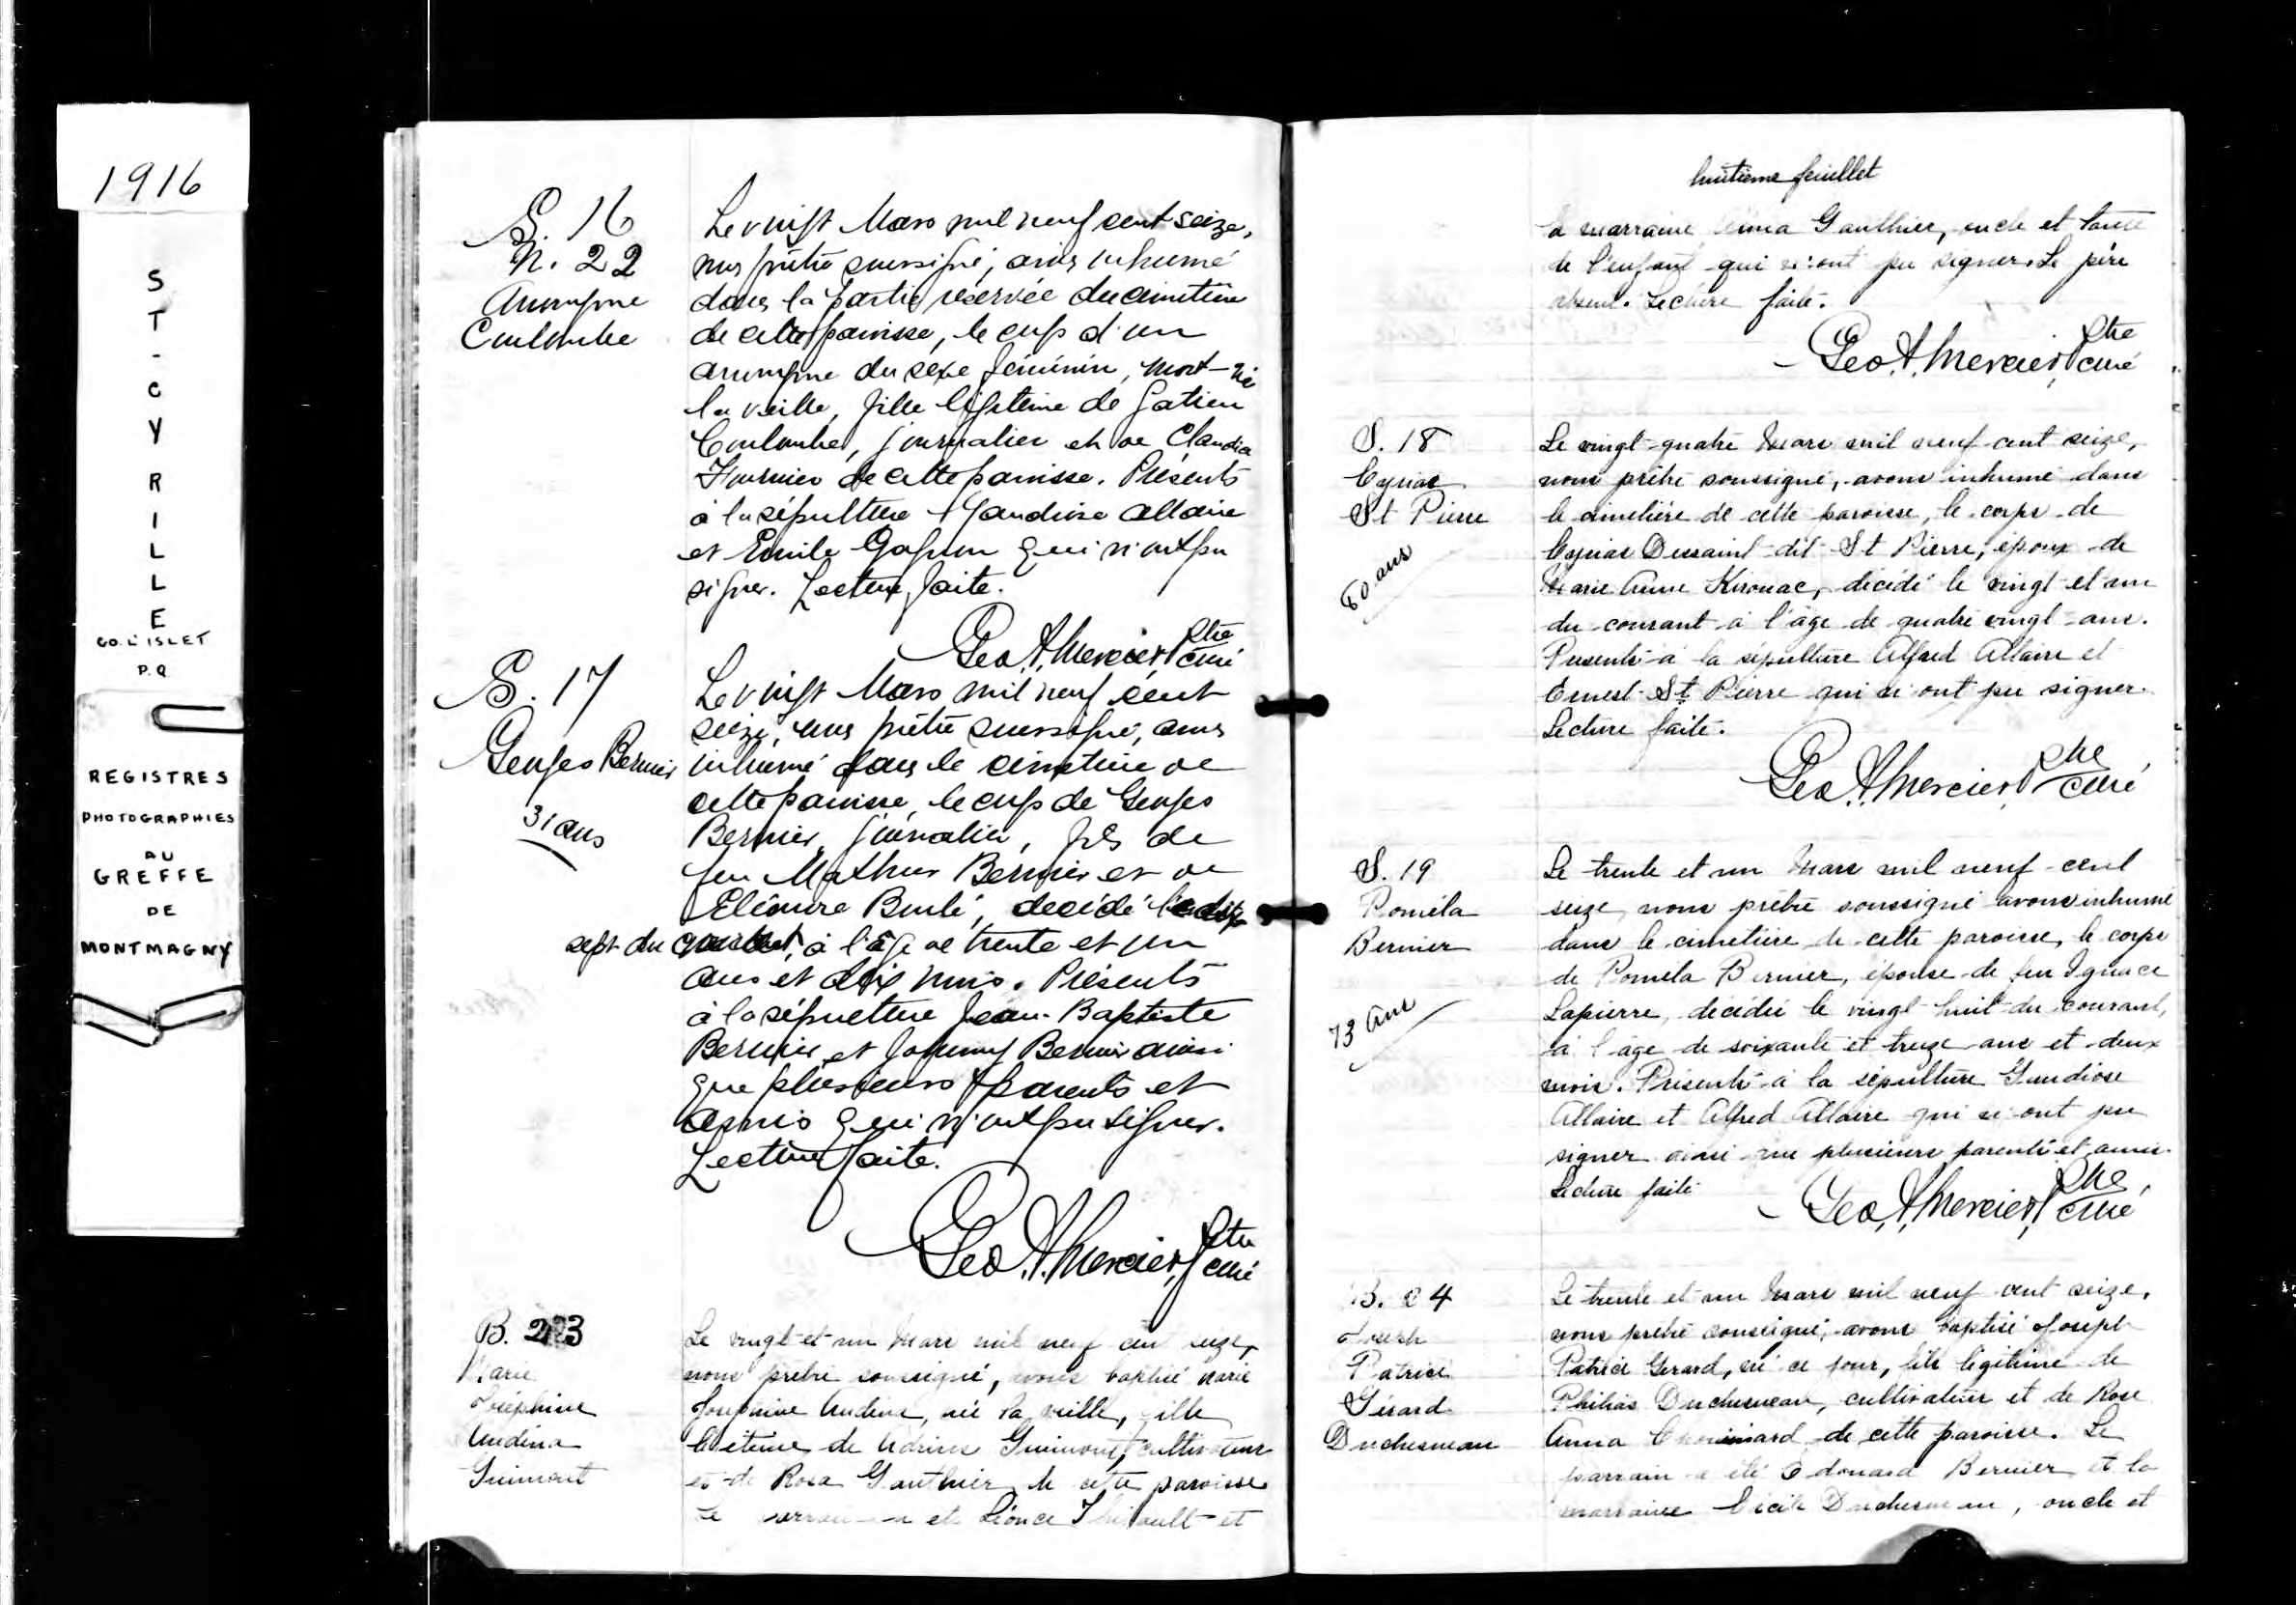 1916
ST-CYRILLE
CO. L'ISLET
P.Q
REGISTRES
PHOTOGRAPHIES
AU
GREFFE
DE
MONTMAGNY
S. 16
N. 22
Anonyme
Coulombe
Le vingt Mars mil neuf cent seize,
nous prêtre soussigné, avons inhumé
dans la partie réservée du cimetière
de cette paroisse, le corps d'un
anonyme du sexe féminin, mort-né
la veille, fille légitime de Gatien
Coulombe, journalier et de Claudia
Fournier de cette paroisse. Présents
à la sépulture Gaudiose Allaire
et Emile Gagnon qui n'ont pu
signer. Lecture faite.
Geo. A. Mercier, Ptre
curé
S. 17
Georges Bernier
31 ans
Le vingt Mars mil neuf cent
seize, nous prêtre soussigné, avons
inhumé dans le cimetière de
cette paroisse, le corps de Georges
Bernier, journalier, fils de
feu Mathias Bernier et de
Eléonore Boulé, décédé le dix
sept du courant, à l'âge de trente et un
ans et dix mois. Présents
à la sépulture Jean-Baptiste
Bernier et Johnny Bernier ainsi
que plusieurs parents et
amis qui n'ont pu signer.
Lecture faite.
Geo. A. Mercier, Ptre
curé
B. 23
Marie
Joséphine
Audina
Guimont
Le vingt-et-un Mars mil neuf cent seize,
nous prêtre soussigné, avons baptisé Marie
Joséphine Audina, née la veille, fille
légitime de Guimont, cultivateur
et de Rosa Gauthier de cette paroisse
Le parrain a été Léonce Thibault et
huitième feuillet
la marraine Anna Gauthier, oncle et tante
de l'enfant qui n'ont pu signer. Le père
absent. Lecture faite.
Geo. A. Mercier, Ptre
curé
S. 18
Cyrias
St Pierre
80 ans
Le vingt-quatre Mars mil neuf cent seize,
nous prêtre soussigné, avons inhumé dans
le cimetière de cette paroisse, le corps de
Cyrias Dessaint dit St Pierre, époux de
Marie Anne Kirouac, décédé le vingt-et-un
du courant à l'âge de quatre vingt ans.
Présents à la sépulture Alfred Allaire et
Ernest St Pierre qui n'ont pu signer.
Lecture faite.
Geo. A. Mercier, Ptre
curé
S. 19
Roméla
Bernier
73 ans
Le trente et un Mars mil neuf cent
seize, nous prêtre soussigné avons inhumé
dans le cimetière de cette paroisse, le corps
de Roméla Bernier, épouse de feu Ignace
Lapierre, décédée le vingt huit du courant,
à l'âge de soixante et treize ans et deux
mois. Présents à la sépulture Gaudiose
Allaire et Alfred Allaire qui n'ont pu
signer ainsi que plusieurs parents et amis.
Lecture faite
Geo. A. Mercier, Ptre
curé
B. 24
Joseph
Patrice
Gérard
Duchesneau
Le trente et un Mars mil neuf cent seize,
nous prêtre soussigné, avons baptisé Joseph
Patrice Gérard, né ce jour, fils légitime de
Philias Duchesneau, cultivateur et de Rose
Anna Chouinard de cette paroisse. Le
parrain a été Edouard Bernier et la
marraine Cécile Duchesneau, oncle et